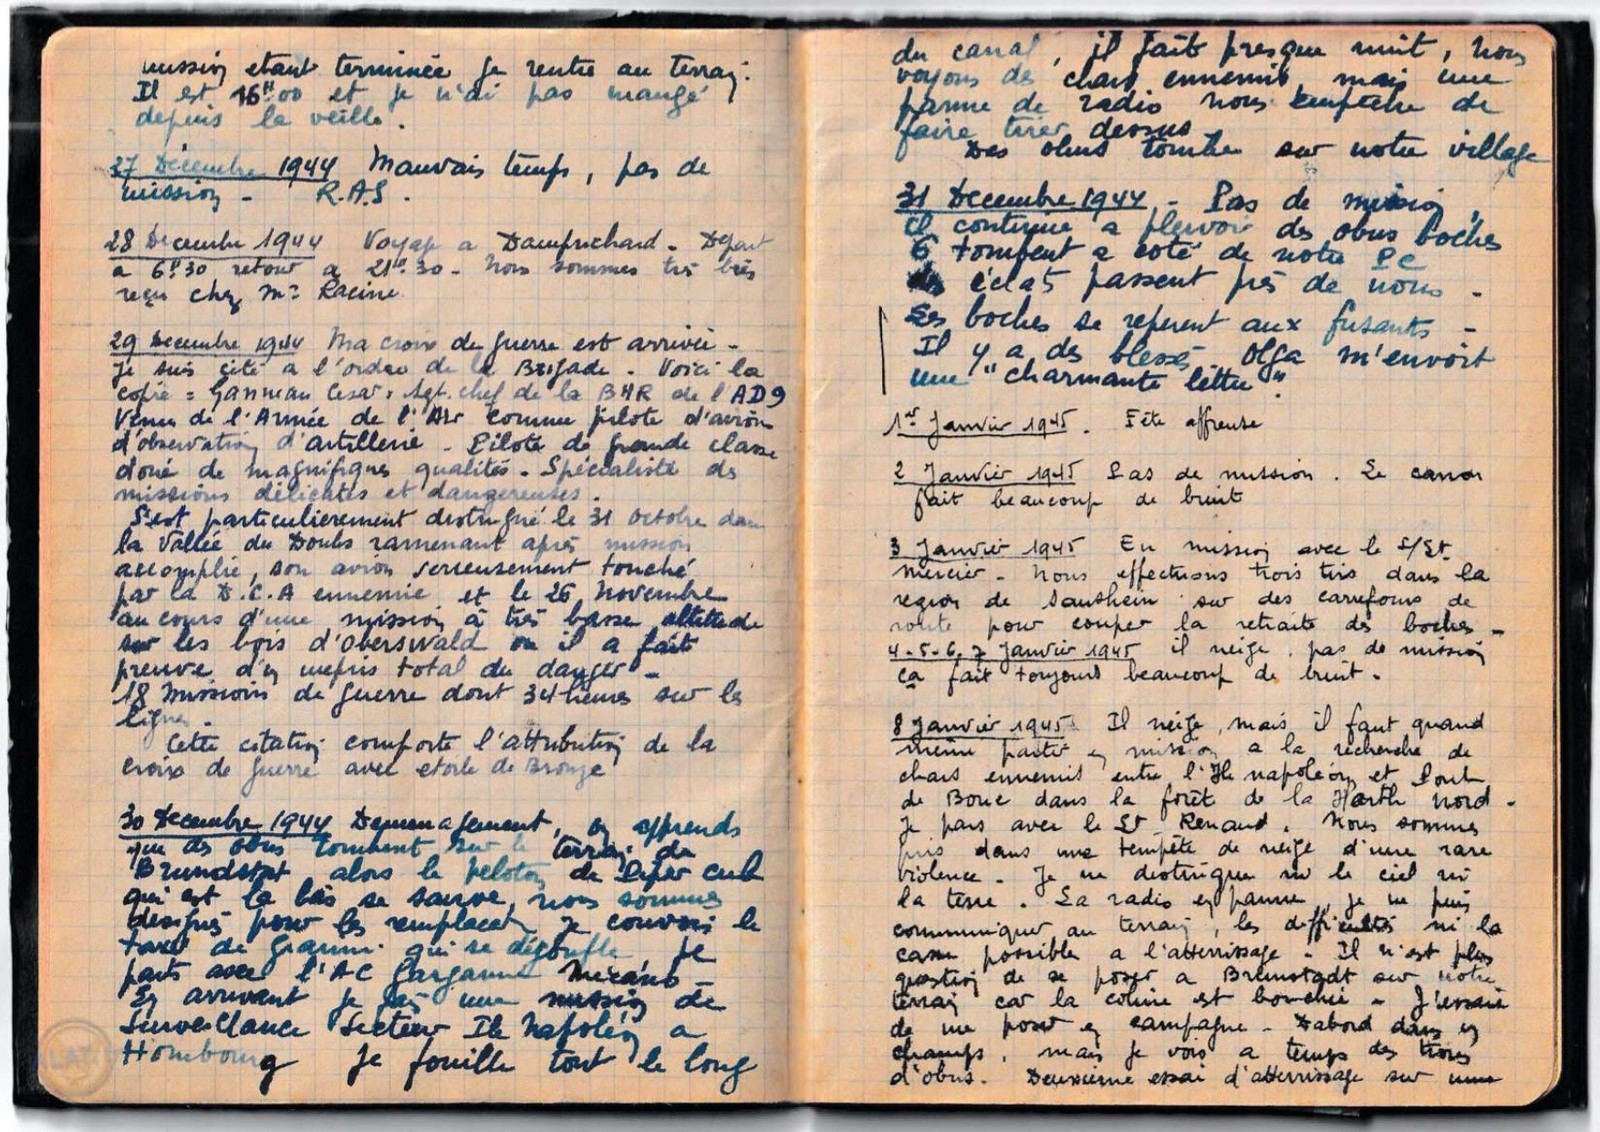 mission etant terminée je rentre au terrain.
Il est 16H00 et je n'ai pas mangé
depuis la veille.
27 Décembre 1944 Mauvais temps, pas de
mission - R.A.S.
28 Decembre 1944 Voyage a Damprichard - Départ
a 6H30 retour a 21H30 - Nous sommes très très
reçu chez Mr Racine
29 Decembre 1944 Ma croix de guerre est arrivée -
Je suis cité a l'ordre de la Brigade. Voici la
copie = Ganneau Cesar, Sgt. chef de la BHR de l'AD9
Venu de l'Armée de l'Air comme pilote d'avion
d'observation d'artillerie - Pilote de grande classe
doué de magnifiques qualités - Spécialiste des
missions délicates et dangereuses.
S'est particulierement distingué le 31 Octobre dans
la Vallée du Doubs ramenant après mission
accomplie, son avion serieusement touché
par la D.C.A ennemie et le 26 Novembre
au cours d'une mission à très basse altitude
sur les bois d'Oberswald ou il a fait
preuve d'un mepris total du danger -
18 Missions de Guerre dont 34 heures sur les
lignes.
Cette citation comporte l'attribution de la
croix de guerre avec etoile de Bronze
30 Decembre 1944 Demenagement, on apprends
que des obus tombent sur le terrain de
Brundstat, alors le peloton de Piper cub
qui est la bas se sauve, nous sommes
designés pour les remplacer, je convois le
taxi de qui se dégoufle Je
parts avec l'AC Garganne Mécano -
En arrivant je fais une mission de
Surveillance Secteur Ile Napoléon a
Hombourg je fouille tout le long
du canal, il fait presque nuit, nous
voyons des chars ennemis, mais une
panne de radio nous empeche de
faire tirer dessus
Des obus tombe sur notre village
31 Decembre 1944 - Pas de mission,
il continue a pleuvoir des obus boches
6 tombent a coté de notre PC
des éclats passent près de nous -
Les boches se reperent aux fusants -
Il y a des blessés, Olga m'envoit
une "charmante lettre".
1er Janvier 1945. Fête affreuse
2 Janvier 1945 Pas de mission. Le canon
fait beaucoup de bruit
3 Janvier 1945 En mission avec le S/Lt
Mercier - Nous effectuons trois tirs dans la
region de Sausheim sur des carrefours de
route pour couper la retraite des boches -
4-5-6.7 Janvier 1945 il neige, pas de mission
ça fait toujours beaucoup de bruit -
8 Janvier 1945 Il neige, mais il faut quand
meme partir en mission a la recherche de
chars ennemis entre l'Ile napoléon et Pont
de Bouc dans la forêt de la Harth nord -
Je pars avec le Lt Renaud. Nous sommes
pris dans une tempête de neige d'une rare
violence - Je ne distingue ni le ciel ni
la terre. La radio en panne, je ne puis
communiquer au terrain, les difficultés ni la
casse possible a l'atterrissage - Il n'est plus
question de se poser a Brunstadt sur notre
terrain car la coline est bouchée - J'essaie
de me poser en campagne - Dabord dans un
champs, mais je vois a temps des trous
d'obus. Deuxieme essai d'atterrissage sur une